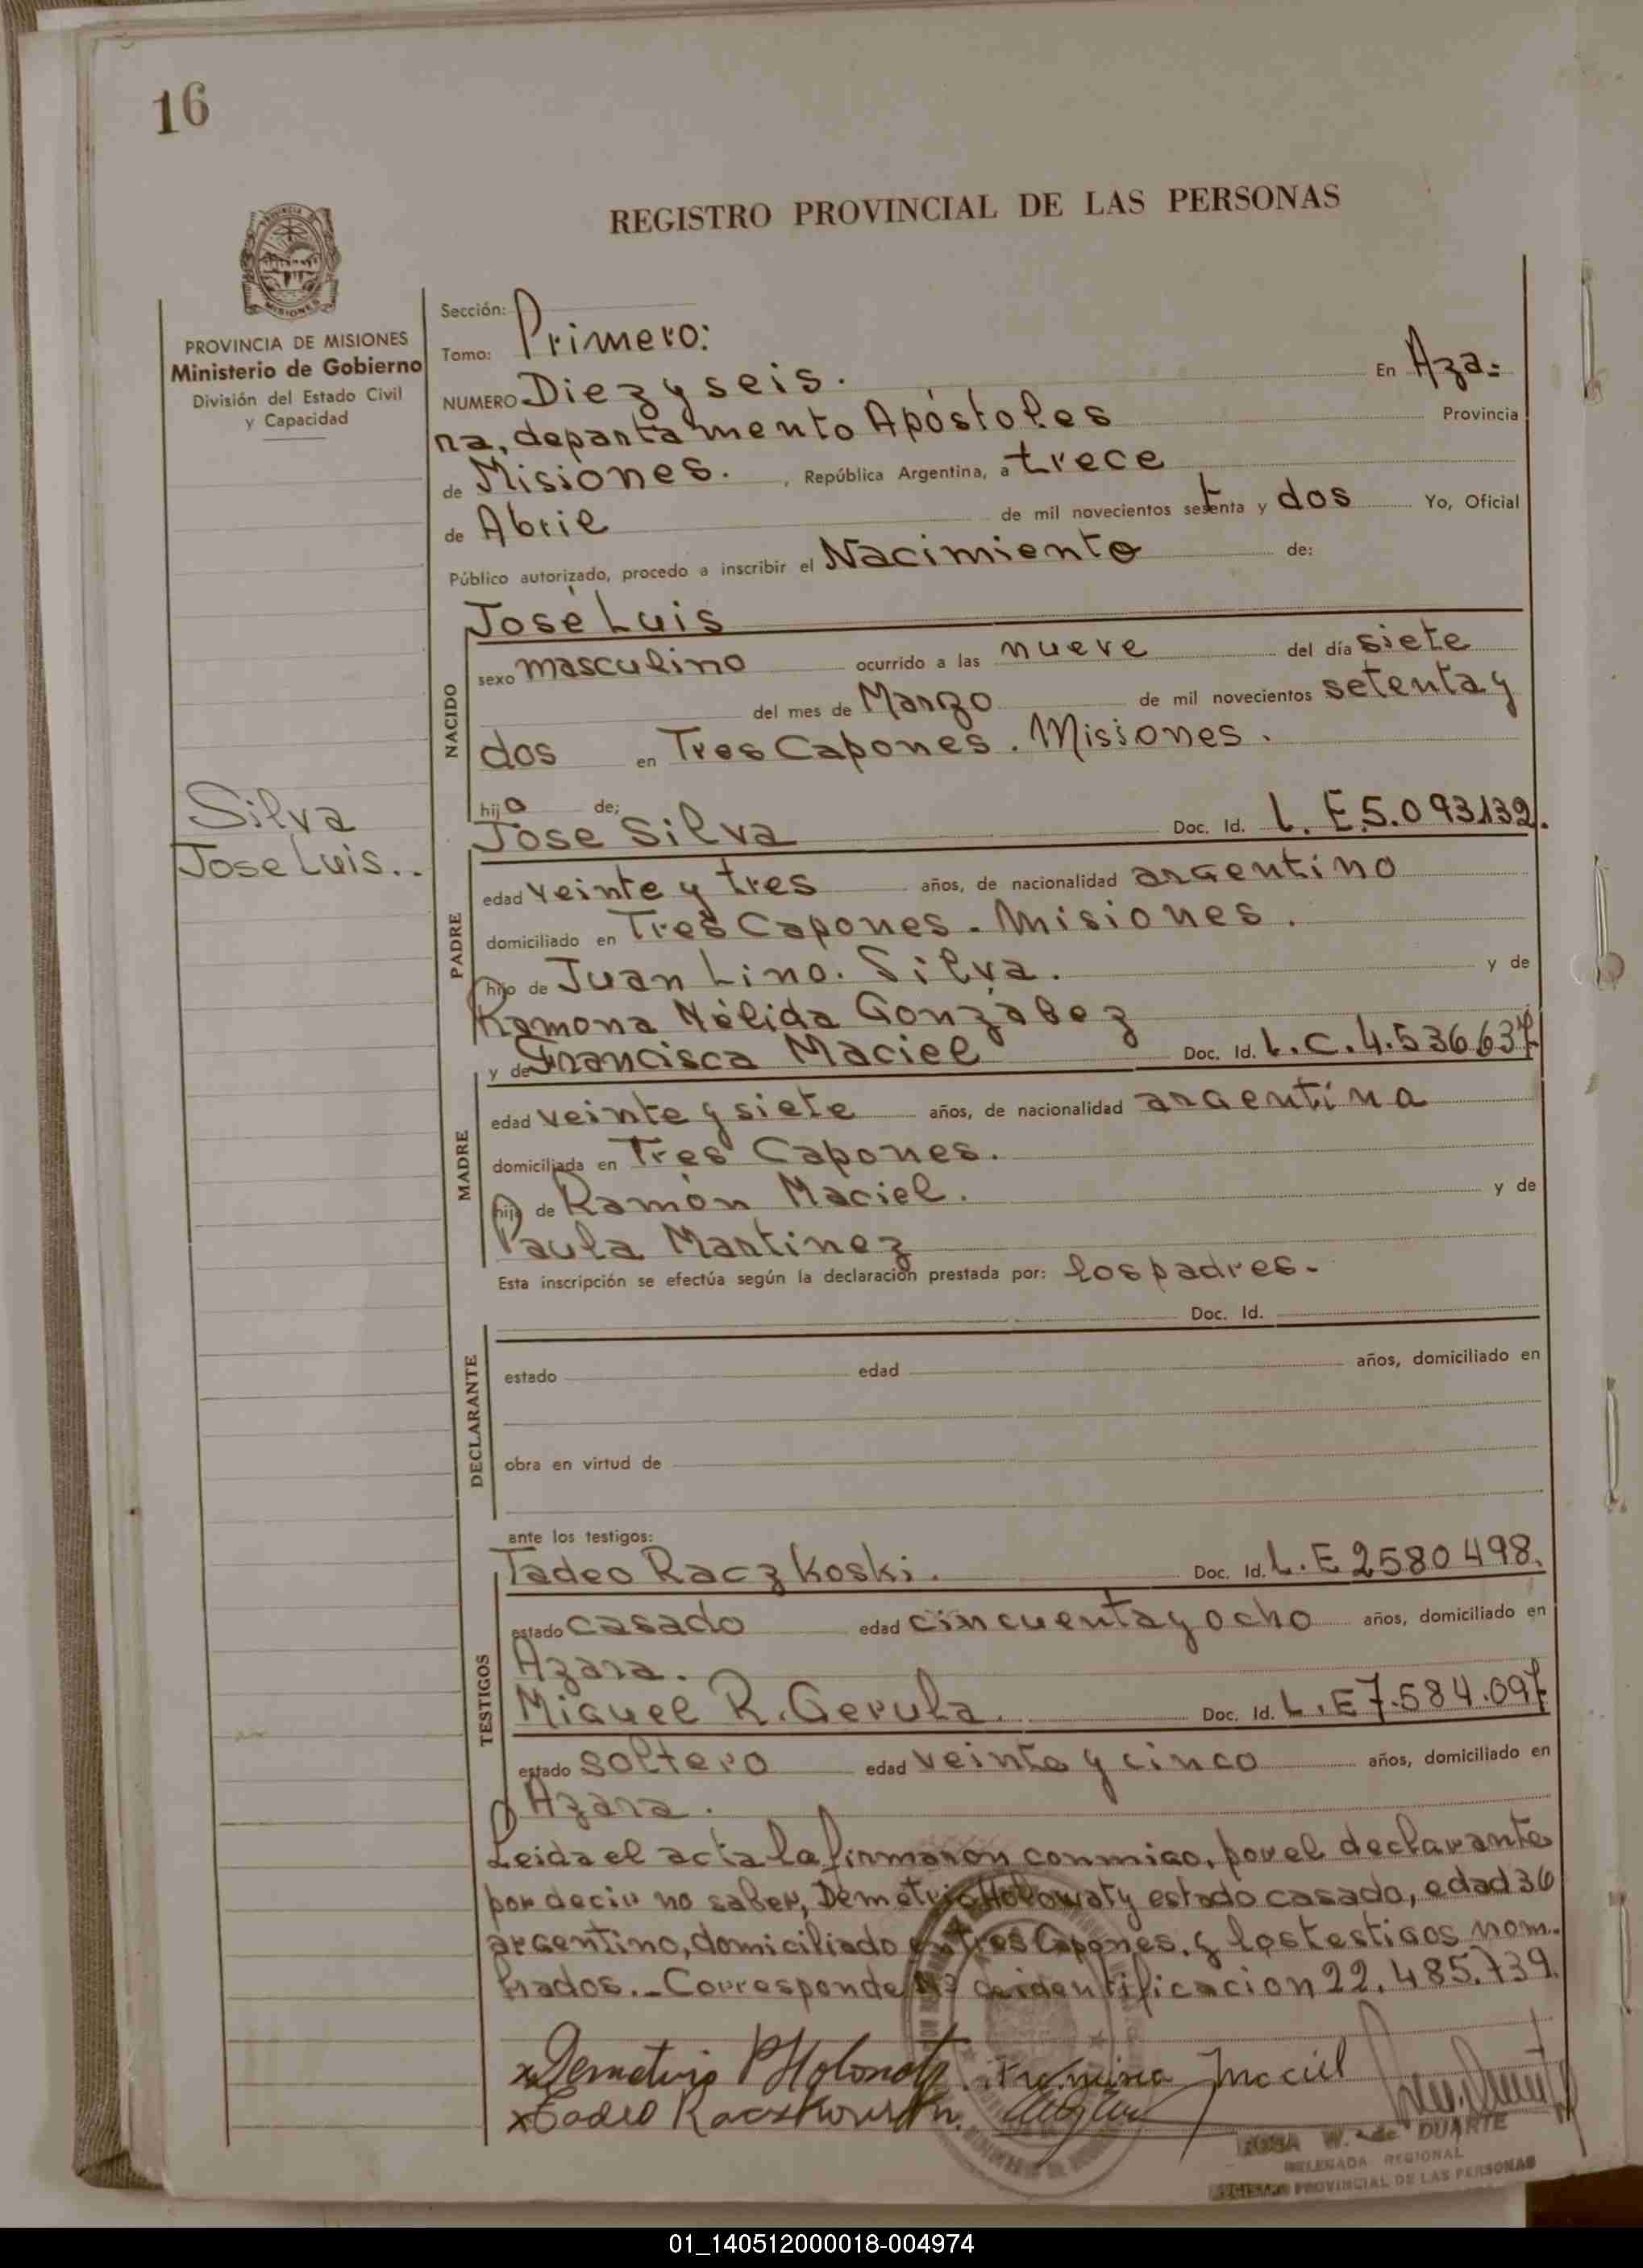 16
REGISTRO PROVINCIAL DE LAS PERSONAS
PROVINCIA DE MISIONES
Ministerio de Gobierno
División del Estado Civil
y Capacidad
Sección:
Tomo: Primero:
NUMERO Diez y seis. En Aza=
ra, departamento Apóstoles Provincia
de Misiones. , República Argentina, a trece
de Abril de mil novecientos setenta y dos Yo, Oficial
Público autorizado, procedo a inscribir el Nacimiento de:
José Luis
NACIDO
sexo masculino ocurrido a las nueve del día siete
del mes de Marzo de mil novecientos setenta y
dos en Tres Capones. Misiones.
hijo de;
Silva
Jose Luis..
Jose Silva Doc. Id. L. E. 5.093132.
PADRE
edad veinte y tres años, de nacionalidad argentino
domiciliado en Tres Capones. Misiones.
hijo de Juan Lino. Silva. y de
Ramona Nélida González
y de Francisca Maciel Doc. Id. L.C. 4.536637
MADRE
edad veinte y siete años, de nacionalidad argentina
domiciliada en Tres Capones.
hija de Ramón Maciel. y de
Paula Martinez
Esta inscripción se efectúa según la declaración prestada por: los padres.
Doc. Id.
DECLARANTE
estado edad años, domiciliado en
obra en virtud de
ante los testigos:
Tadeo Raczkoski. Doc. Id. L.E 2580498.
TESTIGOS
estado casado edad cincuenta y ocho años, domiciliado en
Azara.
Miguel R. Gerula. Doc. Id. L.E 7.584.097
estado soltero edad veinte y cinco años, domiciliado en
Azara.
Leida el acta la firmaron conmigo, por el declarante
por decir no saber, Demetrio Holowaty estado casado, edad 36
argentino, domiciliado en Tres Capones. y los testigos nom-
brados.- Corresponde Nº de identificacion 22.485.739.
x Demetrio P Holowaty Maciel
x Tadeo
ROSA W. de DUARTE
DELEGADA REGIONAL
PROVINCIAL DE LAS PERSONAS
01_140512000018-004974